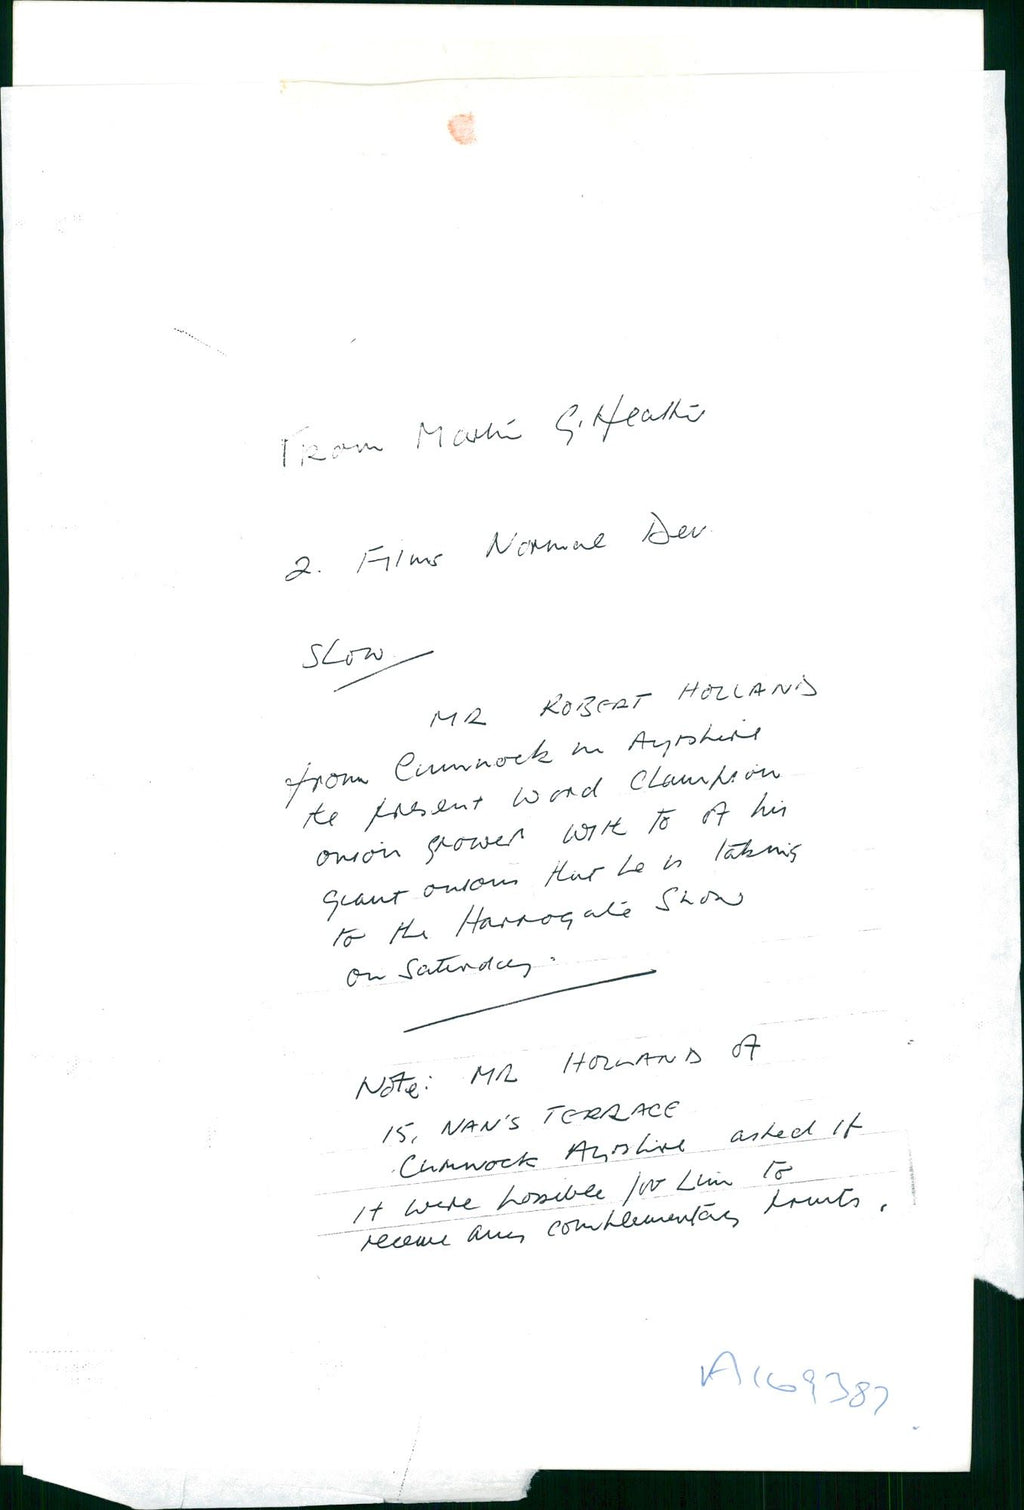 From Martin G. Heathir
2. Films Normal Dev.
SLOW
MR ROBERT HOLLAND
from Cumnock in Ayrshire
the present Word Champion
onion grower with to of his
giant onions that he is taking
to the Harrogate Show
on Saturday.
Note: MR HOLLAND of
15, NAN'S TERRACE
Cumnock Ayrshire asked if
it were possible for him to
receive any complementary prints.
A169387